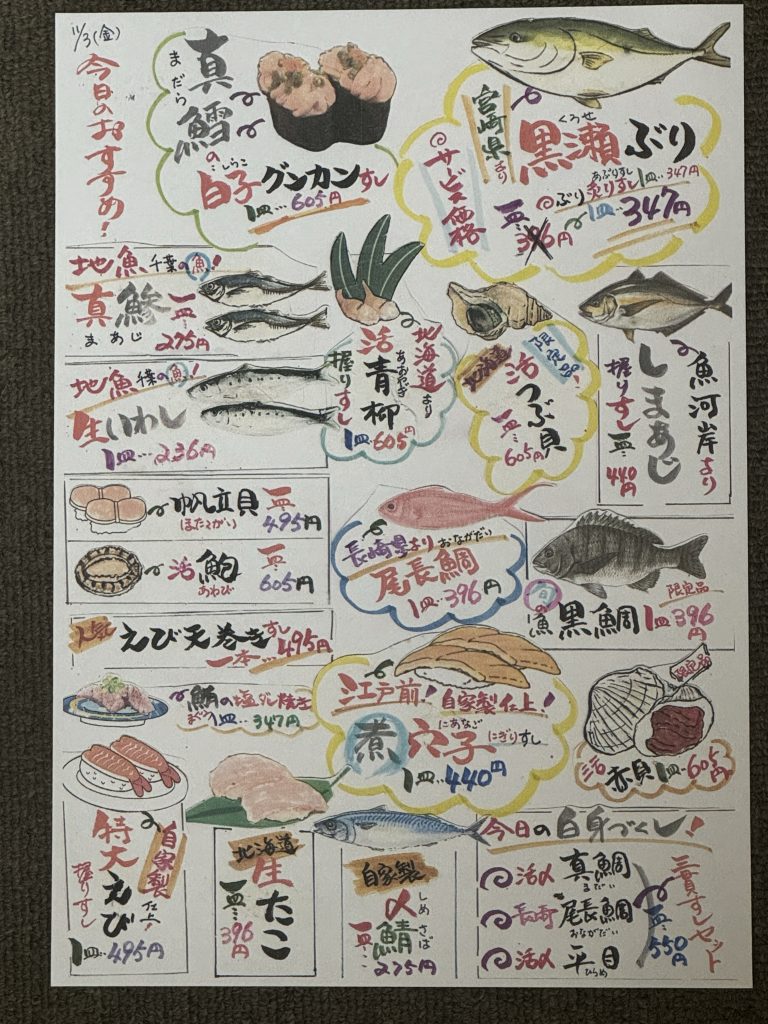 11/3(金)
今日のおすすめ!
まだら
真鱈の
しらこ
白子グンカンすし
1皿…605円
宮崎県より
くろせ
黒瀬ぶり
◎サービス価格
あぶりすし
◎ぶり炙りすし1皿…347円
一皿…396円
1皿…347円
地魚千葉の魚!
真鯵
まあじ
一皿…275円
地魚千葉の魚!
生いわし
1皿…236円
北海道より
活青柳
あおやぎ
握りすし
1皿…605円
限定品!
北海道
活つぶ貝
一皿…605円
魚河岸より
しまあじ
握りすし一皿…440円
帆立貝
ほたてがい
一皿…495円
活鮑
あわび
一皿…605円
長崎県より
おながだい
尾長鯛
1皿…396円
旬の魚
黒鯛
限定品
1皿396円
人気
えび天巻きすし
一本…495円
鮪の塩ダレ焼き
まぐろ
1皿…347円
江戸前!自家製仕上!
煮穴子
にあなご
にぎりすし
1皿…440円
限定品
活赤貝1皿…605円
自家製仕上!
特大えび
握りすし
1皿…495円
北海道
生たこ
一皿…396円
自家製
〆鯖
しめさば
一皿…275円
今日の白身づくし!
活〆真鯛
まだい
長崎尾長鯛
おながだい
活〆平目
ひらめ
三貫すしセット
一皿…550円